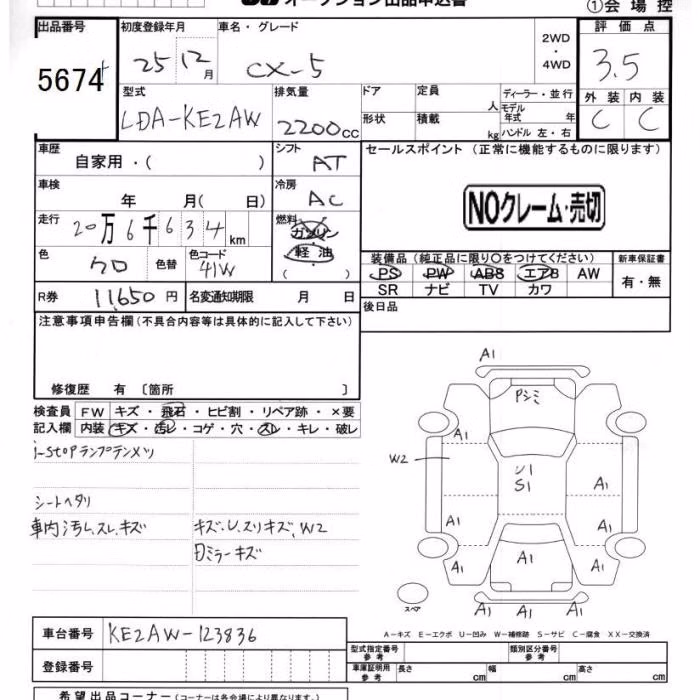 オークション出品申込書
①会場控
出品番号 初度登録年月 車名・グレード 2WD・4WD 評価点
5674 25 12月 CX-5 3.5
型式 排気量 ドア 定員 人 ディーラー・並行 外装 内装
LDA-KE2AW 2200cc 形状 積載 kg モデル年式 年 ハンドル 左・右 C C
車歴 自家用・( ) シフト AT セールスポイント (正常に機能するものに限ります)
車検 年 月( 日) 冷房 AC
NOクレーム・売切
走行 20万6千634km 燃料 ガソリン 軽油 ( )
色 クロ 色替 色コード 41W
装備品(純正品に限り〇をつけてください) 新車保証書
PS PW ABS エアB AW 有・無
SR ナビ TV カワ
R券 11,650円 名変通知期限 月 日 後日品
注意事項申告欄(不具合内容等は具体的に記入して下さい)
修復歴 有 〔箇所 〕
検査員 FW キズ・飛石・ヒビ割・リペア跡・×要
記入欄 内装 キズ・汚レ・コゲ・穴・スレ・キレ・破レ
i-stopランプテンメツ
シートヘタリ
車内汚レ、スレ、キズ キズ、U、スリキズ、W2
ミラーキズ
A1
A1
W2
S1
A1
A1 A1
A1 A1 A1
A1 A1 A1
スペア
A-キズ E-エクボ U-凹み W-補修跡 S-サビ C-腐食 XX-交換済
車台番号 KE2AW-123836
型式指定番号 参考 類別区分番号 参考
登録番号
車庫証明用 参考 長さ cm 幅 cm 高さ cm
希望出品コーナー(コーナーは各会場により異なります。)